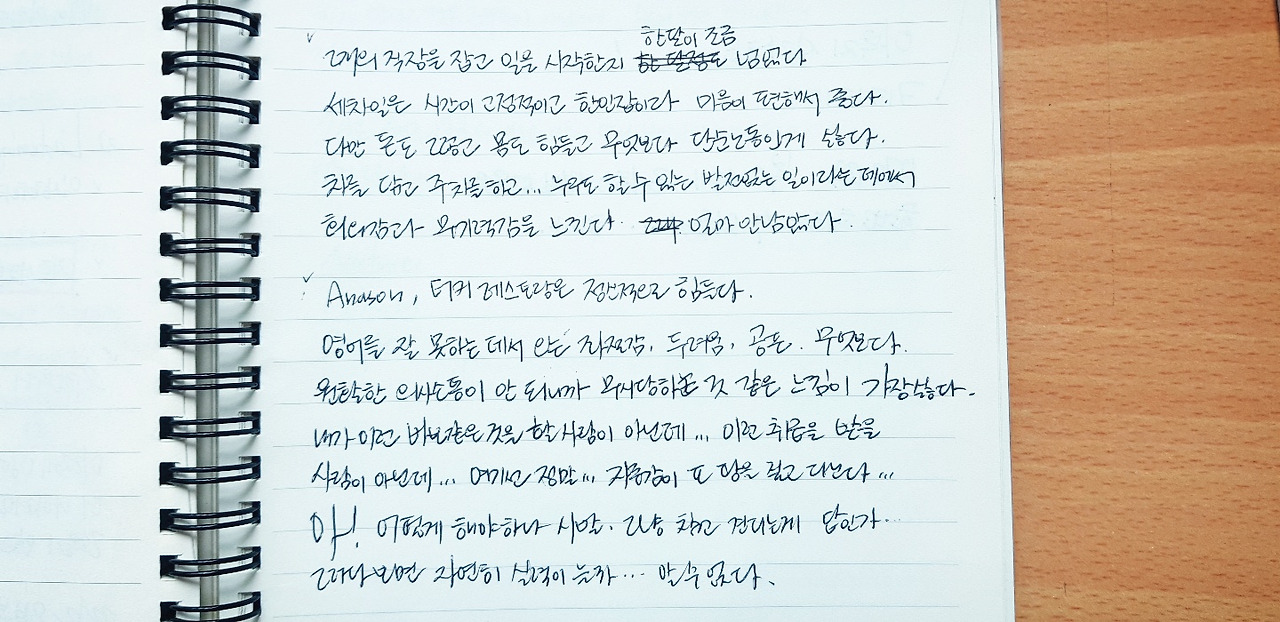 한달이 조금
2개의 직장을 잡고 일을 시작한지 한 달정도 넘었다
세차일은 시간이 고정적이고 한인잡이라 마음이 편해서 좋다.
다만 돈도 그렇고 몸도 힘들고 무엇보다 단순노동인게 싫다.
차를 닦고 주차를하고... 누구도 할 수 있는 발전없는 일이라는 데에서
회의감과 무기력감을 느낀다. 얼마 안남았다.
Anason, 터키 레스토랑은 정신적으로 힘들다.
영어를 잘 못하는 데서 오는 좌절감, 두려움, 공포. 무엇보다.
원활한 의사소통이 안 되니까 무시당하는 것 같은 느낌이 가장싫다.
내가 이런 바보같은 것을 할 사람이 아닌데... 이런 취급을 받을
사람이 아닌데... 여기선 정말... 자존감이 또 땅을 뚫고 다닌다...
아! 어떻게 해야하나 시발. 그냥 참고 견디는게 답인가..
그러다보면 자연히 실력이 늘까... 알 수 없다.